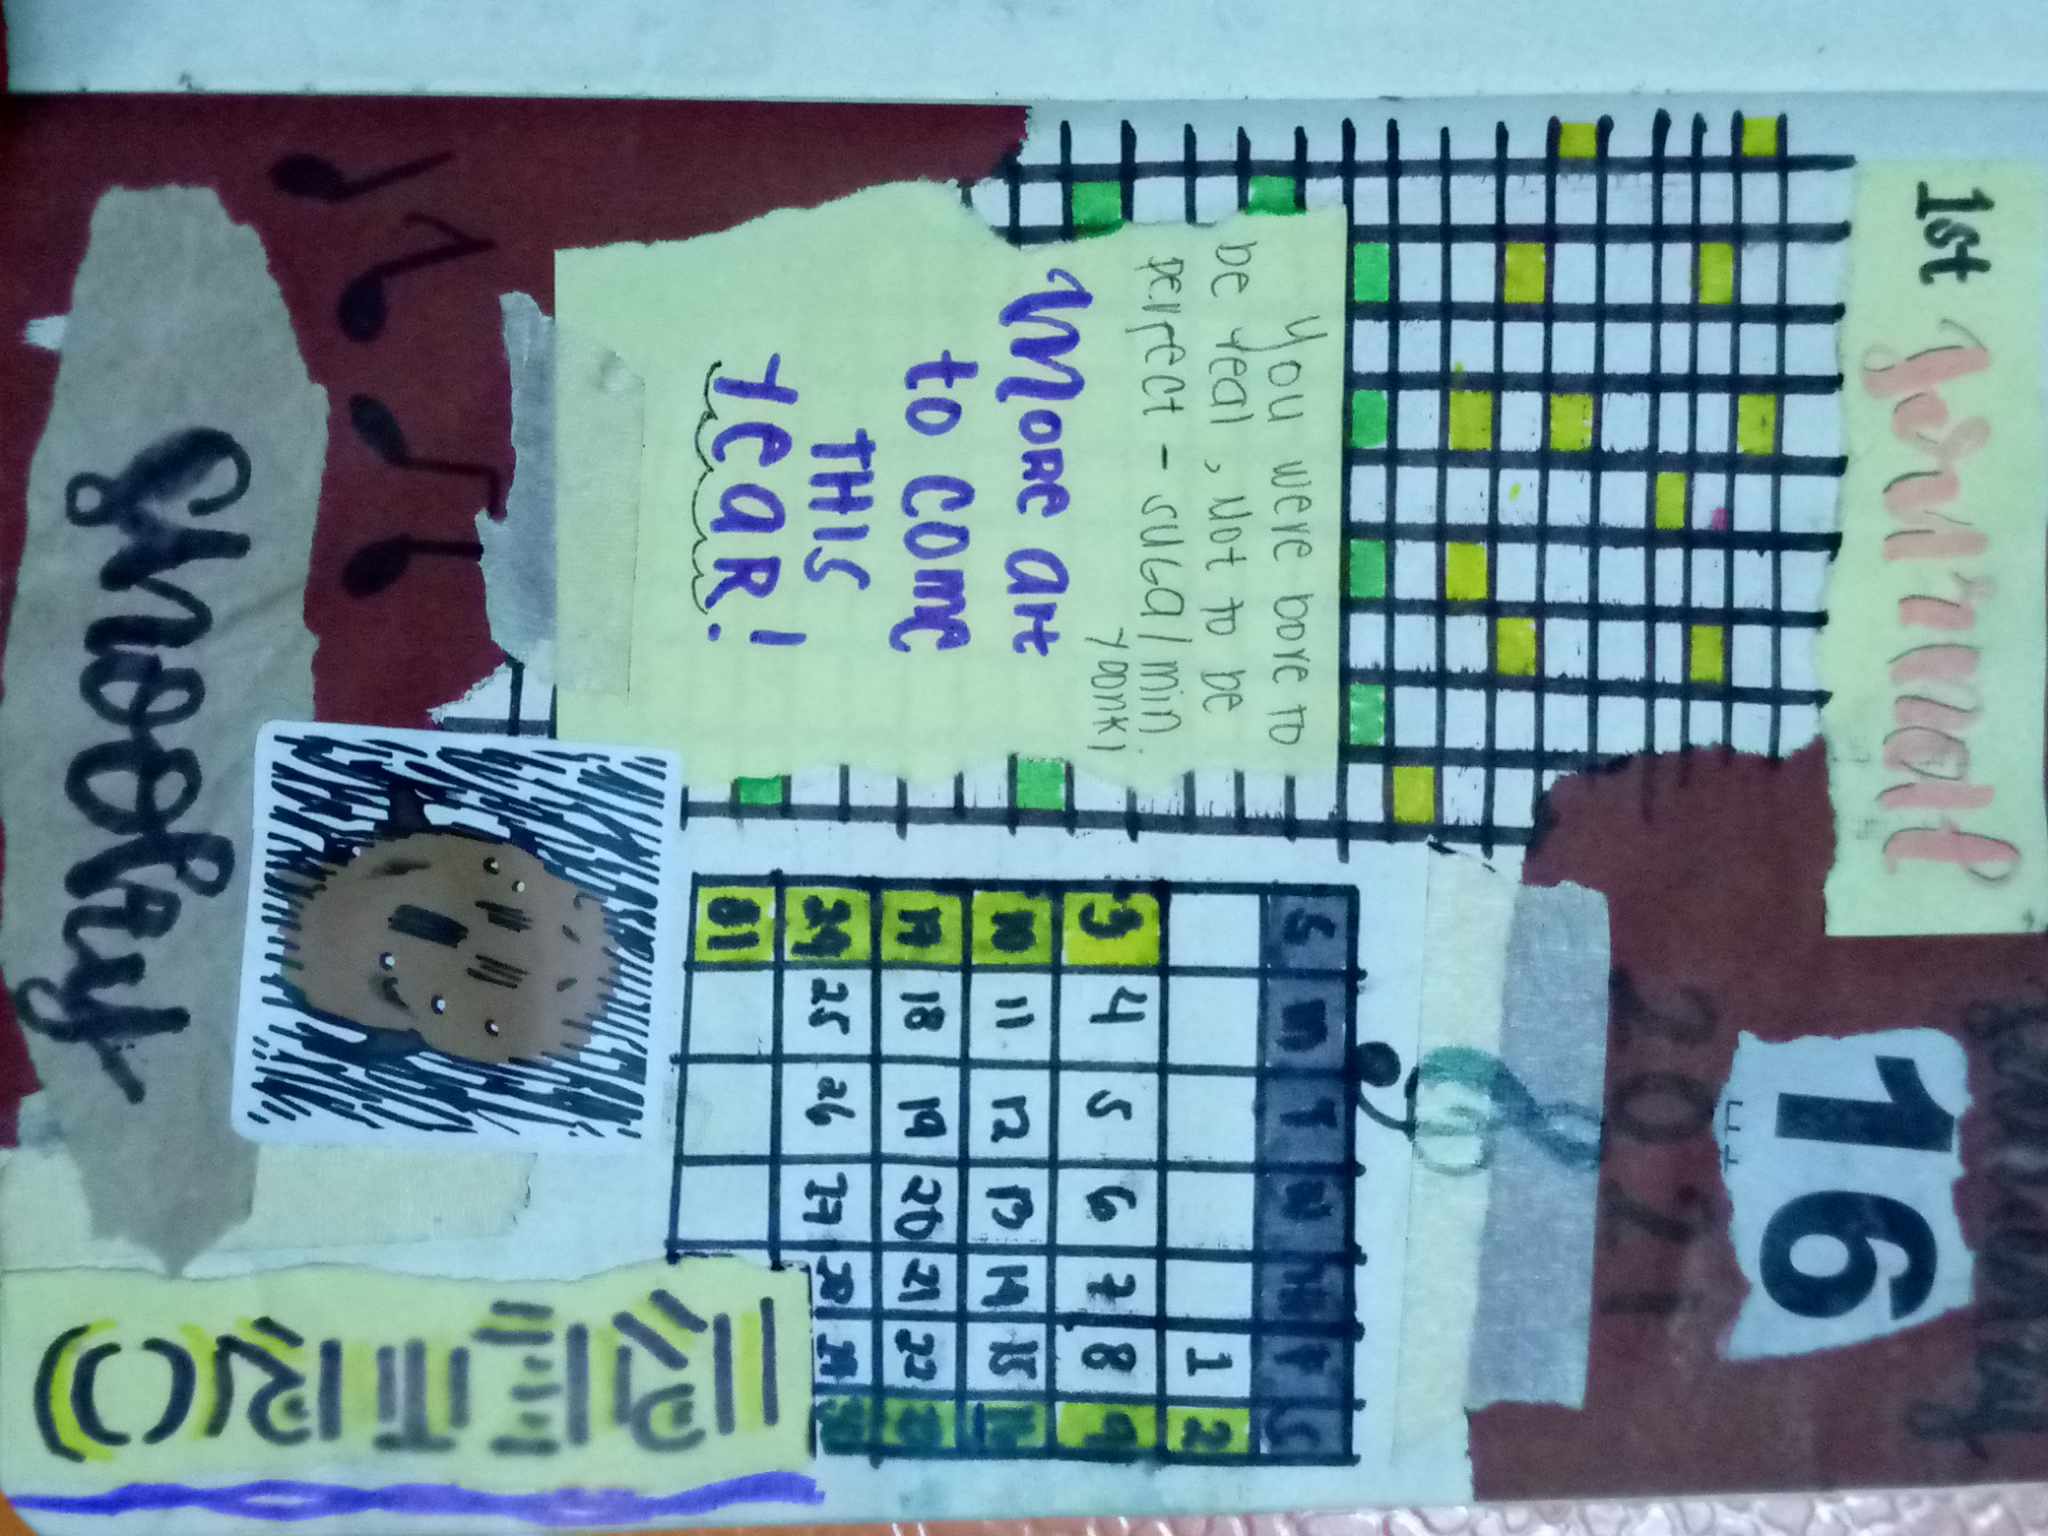 1st Journal
January
16
2021
You were bore to
be real, Not to be
perfect - suga/min
yoonki
More art
to come
THIS
YeaR!
S M T W TH F S
1 2
3 4 5 6 7 8 9
10 11 12 13 14 15 16
17 18 19 20 21 22 23
24 25 26 27 28 29 30
31
RETRO